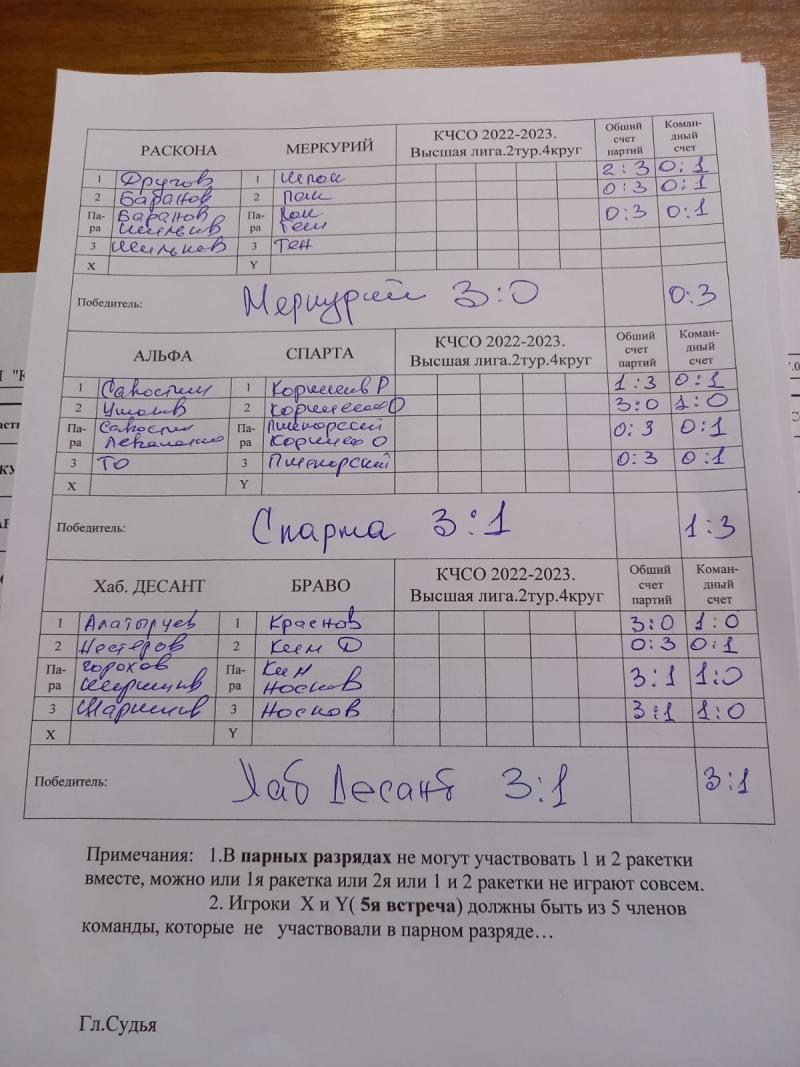 РАСКОНА МЕРКУРИЙ КЧСО 2022-2023. Высшая лига.2тур.4круг Общий счет партий Коман-дный счет
1 Другов 1 2 : 3 0 : 1
2 Баранов 2 Пак 0 : 3 0 : 1
Па-ра Баранов Па-ра 0 : 3 0 : 1
3 3 Тен
X Y
Победитель: Меркурий 3:0 0:3
АЛЬФА СПАРТА КЧСО 2022-2023. Высшая лига.2тур.4круг Общий счет партий Коман-дный счет
1 1 1 : 3 0 : 1
2 2 3:0 1:0
Па-ра Па-ра 0:3 0:1
3 ТО 3 0:3 0:1
X Y
Победитель: Спарта 3:1 1:3
Хаб. ДЕСАНТ БРАВО КЧСО 2022-2023. Высшая лига.2тур.4круг Общий счет партий Коман-дный счет
1 Алатырцев 1 Краснов 3:0 1:0
2 Нестеров 2 Ким Д 0:3 0:1
Па-ра Горохов Па-ра Ким Носков 3:1 1:0
3 3 Носков 3:1 1:0
X Y
Победитель: Хаб Десант 3:1 3:1
Примечания: 1.В парных разрядах не могут участвовать 1 и 2 ракетки
вместе, можно или 1я ракетка или 2я или 1 и 2 ракетки не играют совсем.
2. Игроки X и Y( 5я встреча) должны быть из 5 членов
команды, которые не участвовали в парном разряде…
Гл.Судья